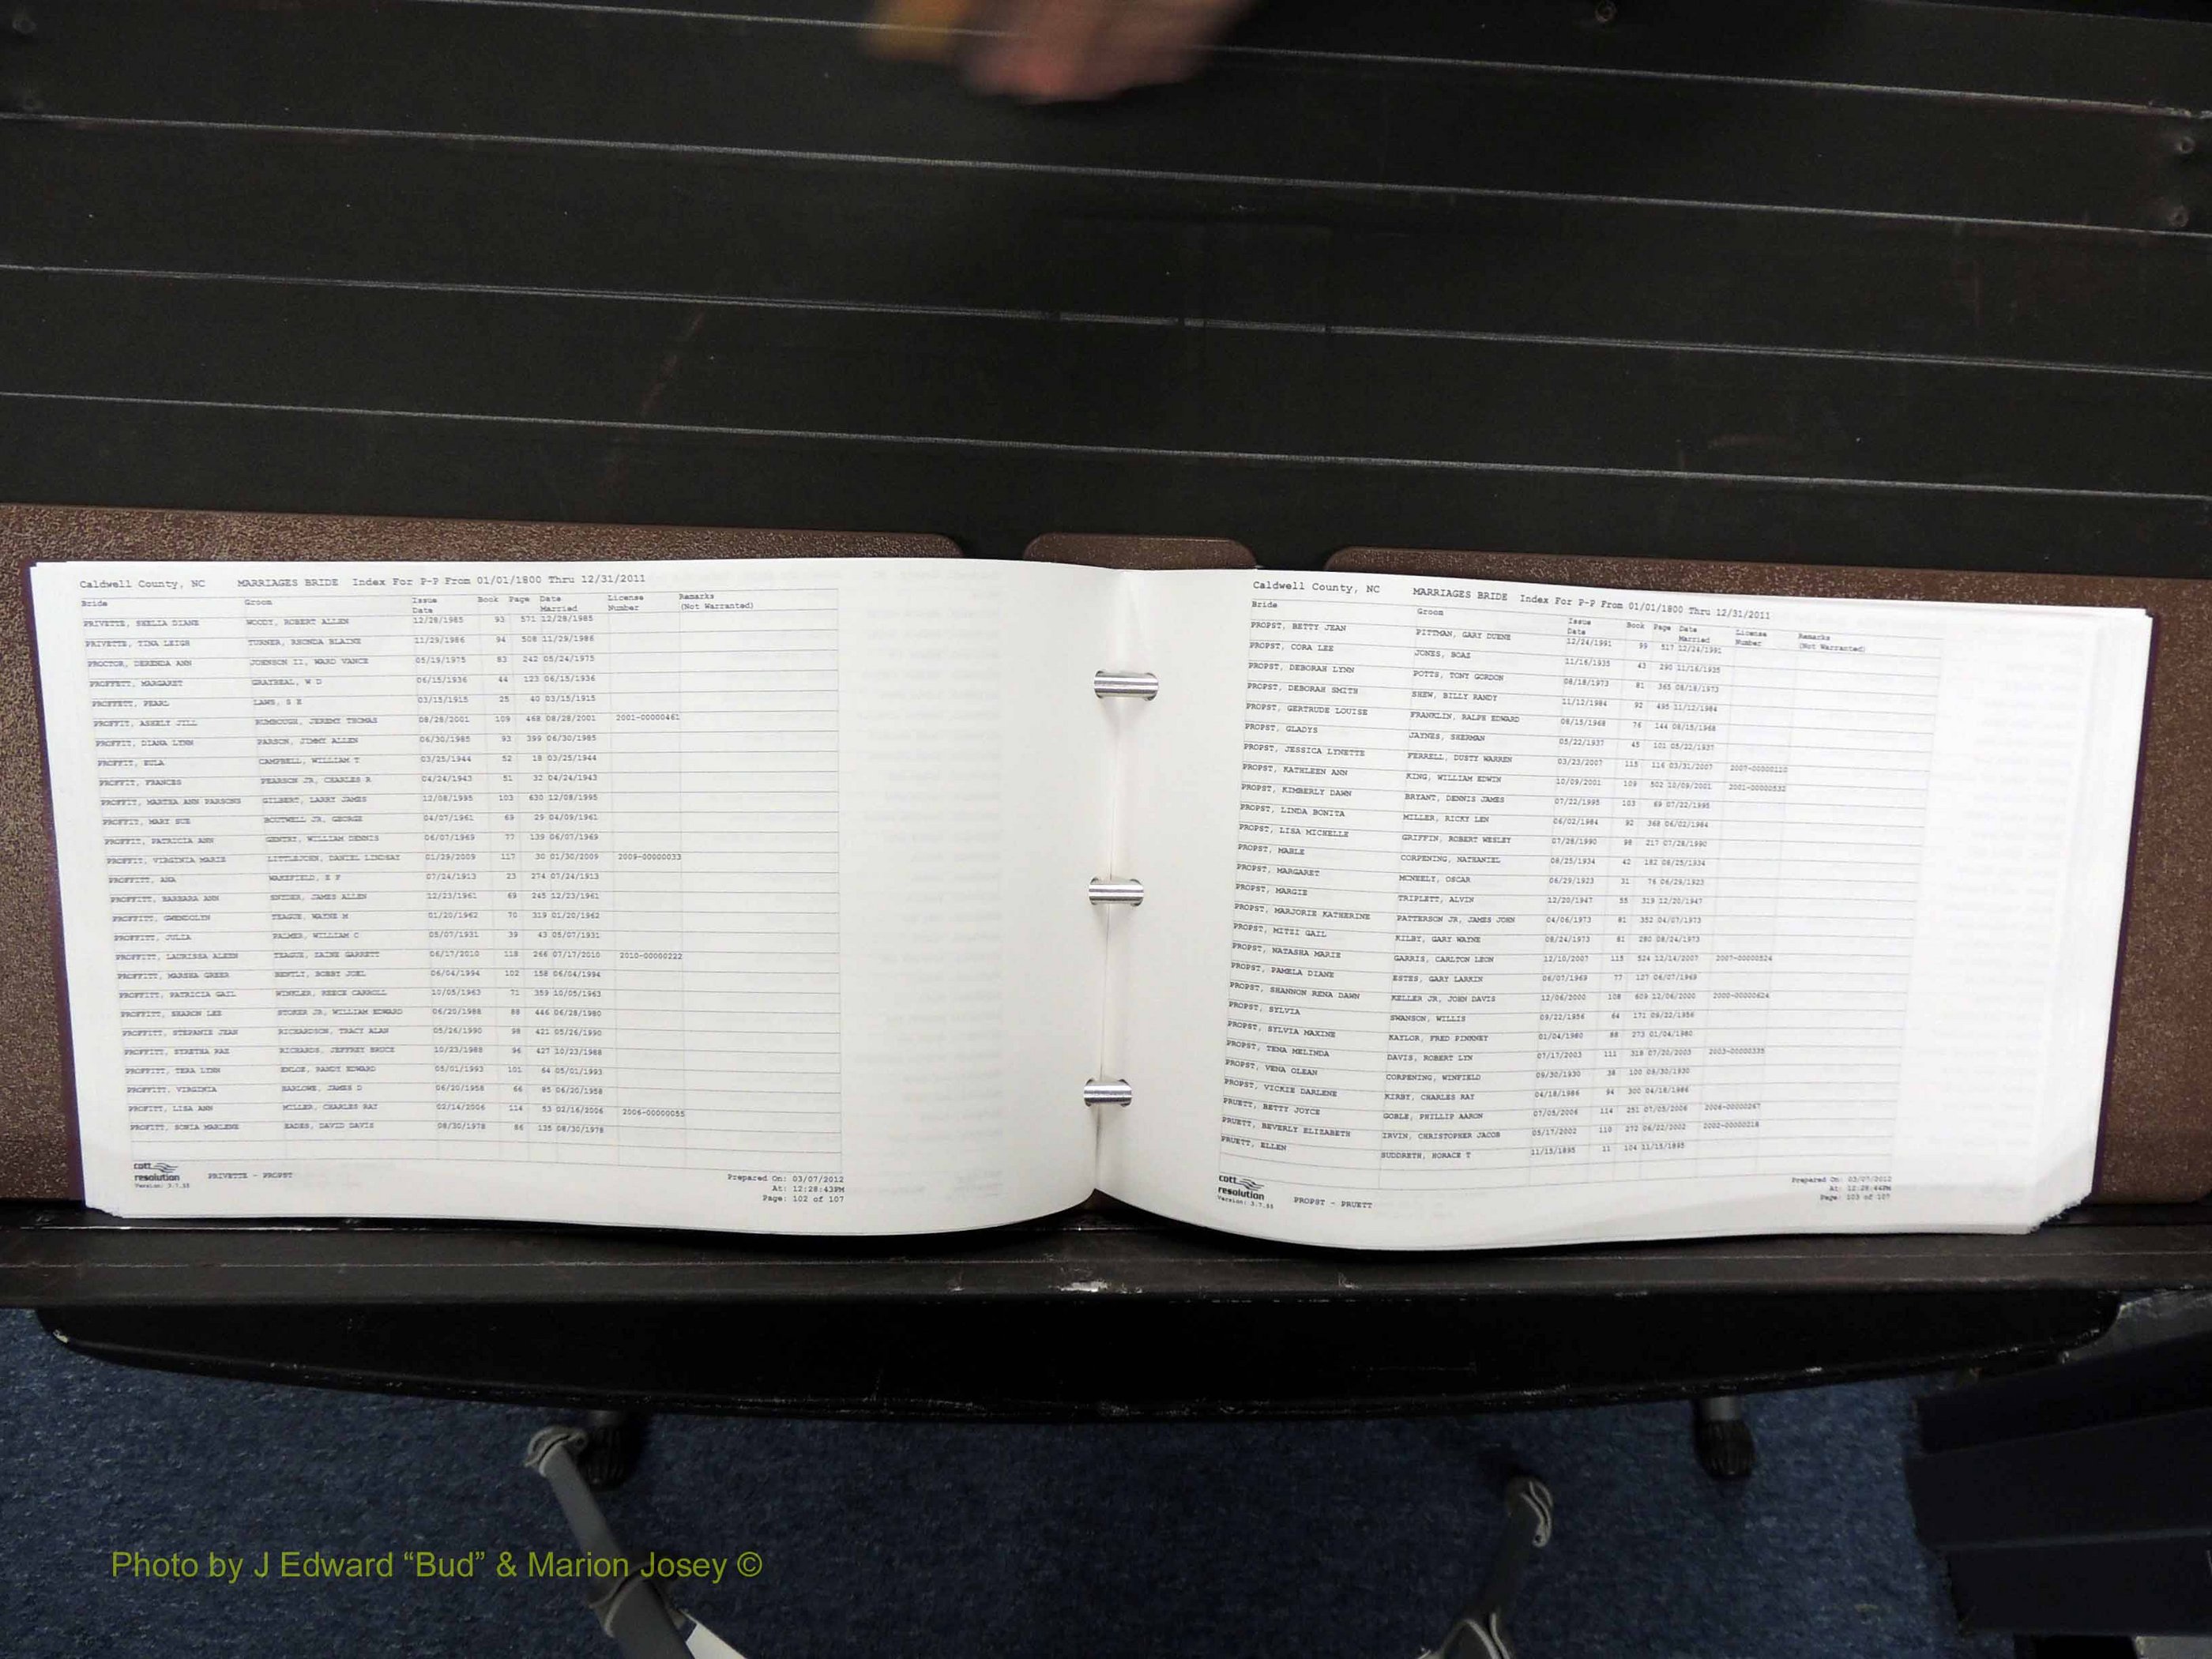 Caldwell County, NC MARRIAGES BRIDE Index For P-P From 01/01/1800 Thru 12/31/2011
Bride Groom Issue Date Book Page Date Married License Number Remarks (Not Warranted)
PRIVETTE, SHELIA DIANE WOODY, ROBERT ALLEN 12/28/1985 93 571 12/28/1985
PRIVETTE, TINA LEIGH TURNER, RHONDA BLAINE 11/29/1986 94 508 11/29/1986
PROCTOR, DERENDA ANN JOHNSON II, WARD VANCE 05/19/1975 83 242 05/24/1975
PROFFETT, MARGARET GRAYBEAL, W D 06/15/1936 44 123 06/15/1936
PROFFETT, PEARL LAWS, S E 03/15/1915 25 40 03/15/1915
PROFFIT, ASHELY JILL RUMBOUGH, JEREMY THOMAS 08/28/2001 109 468 08/28/2001 2001-00000461
PROFFIT, DIANA LYNN PARSON, JIMMY ALLEN 06/30/1985 93 399 06/30/1985
PROFFIT, EULA CAMPBELL, WILLIAM T 03/25/1944 52 18 03/25/1944
PROFFIT, FRANCES PEARSON JR, CHARLES R 04/24/1943 51 32 04/24/1943
PROFFIT, MARTHA ANN PARSONS GILBERT, LARRY JAMES 12/08/1995 103 630 12/08/1995
PROFFIT, MARY SUE BOUTWELL JR, GEORGE 04/07/1961 69 29 04/09/1961
PROFFIT, PATRICIA ANN GENTRY, WILLIAM DENNIS 06/07/1969 77 139 06/07/1969
PROFFIT, VIRGINIA MARIE LITTLEJOHN, DANIEL LINDSAY 01/29/2009 117 30 01/30/2009 2009-00000033
PROFFITT, ANA WAKEFIELD, E F 07/24/1913 23 274 07/24/1913
PROFFITT, BARBARA ANN SNYDER, JAMES ALLEN 12/23/1961 69 245 12/23/1961
PROFFITT, GWENDOLYN TEAGUE, WAYNE M 01/20/1962 70 319 01/20/1962
PROFFITT, JULIA PALMER, WILLIAM C 05/07/1931 39 43 05/07/1931
PROFFITT, LAURISSA ALEEN TEAGUE, ZAINE GARRETT 06/17/2010 118 266 07/17/2010 2010-00000222
PROFFITT, MARSHA GREER BENTLY, BOBBY JOEL 06/04/1994 102 158 06/04/1994
PROFFITT, PATRICIA GAIL WINKLER, REECE CARROLL 10/05/1963 71 359 10/05/1963
PROFFITT, SHARON LEE STOKER JR, WILLIAM EDWARD 06/20/1988 88 446 06/28/1980
PROFFITT, STEPANIE JEAN RICHARDSON, TRACY ALAN 05/26/1990 98 421 05/26/1990
PROFFITT, SYRETHA RAE RICHARDS, JEFFREY BRUCE 10/23/1988 96 427 10/23/1988
PROFFITT, TERA LYNN ENLOE, RANDY EDWARD 05/01/1993 101 64 05/01/1993
PROFFITT, VIRGINIA BARLOWE, JAMES D 06/20/1958 66 85 06/20/1958
PROFITT, LISA ANN MILLER, CHARLES RAY 02/14/2006 114 53 02/16/2006 2006-00000055
PROFITT, SONIA MARLENE EADES, DAVID DAVIS 08/30/1978 86 135 08/30/1978
cott resolution
Version: 3.7.55
PRIVETTE - PROPST
Prepared On: 03/07/2012
At: 12:28:43PM
Page: 102 of 107
Caldwell County, NC MARRIAGES BRIDE Index For P-P From 01/01/1800 Thru 12/31/2011
Bride Groom Issue Date Book Page Date Married License Number Remarks (Not Warranted)
PROPST, BETTY JEAN PITTMAN, GARY DUENE 12/24/1991 99 517 12/24/1991
PROPST, CORA LEE JONES, BOAZ 11/16/1935 43 290 11/16/1935
PROPST, DEBORAH LYNN POTTS, TONY GORDON 08/18/1973 81 365 08/18/1973
PROPST, DEBORAH SMITH SHEW, BILLY RANDY 11/12/1984 92 495 11/12/1984
PROPST, GERTRUDE LOUISE FRANKLIN, RALPH EDWARD 08/15/1968 76 144 08/15/1968
PROPST, GLADYS JAYNES, SHERMAN 05/22/1937 45 101 05/22/1937
PROPST, JESSICA LYNETTE FERRELL, DUSTY WARREN 03/23/2007 115 116 03/31/2007 2007-00000120
PROPST, KATHLEEN ANN KING, WILLIAM EDWIN 10/09/2001 109 502 10/09/2001 2001-00000532
PROPST, KIMBERLY DAWN BRYANT, DENNIS JAMES 07/22/1995 103 69 07/22/1995
PROPST, LINDA BONITA MILLER, RICKY LEN 06/02/1984 92 368 06/02/1984
PROPST, LISA MICHELLE GRIFFIN, ROBERT WESLEY 07/28/1990 98 217 07/28/1990
PROPST, MABLE CORPENING, NATHANIEL 08/25/1934 42 182 08/25/1934
PROPST, MARGARET MCNEELY, OSCAR 06/29/1923 31 76 06/29/1923
PROPST, MARGIE TRIPLETT, ALVIN 12/20/1947 55 319 12/20/1947
PROPST, MARJORIE KATHERINE PATTERSON JR, JAMES JOHN 04/06/1973 81 352 04/07/1973
PROPST, MITZI GAIL KILBY, GARY WAYNE 08/24/1973 81 280 08/24/1973
PROPST, NATASHA MARIE GARRIS, CARLTON LEON 12/10/2007 115 524 12/14/2007 2007-00000524
PROPST, PAMELA DIANE ESTES, GARY LARKIN 06/07/1969 77 127 06/07/1969
PROPST, SHANNON RENA DAWN KELLER JR, JOHN DAVIS 12/06/2000 108 609 12/06/2000 2000-00000624
PROPST, SYLVIA SWANSON, WILLIS 09/22/1956 64 171 09/22/1956
PROPST, SYLVIA MAXINE KAYLOR, FRED PINKNEY 01/04/1980 88 273 01/04/1980
PROPST, TENA MELINDA DAVIS, ROBERT LYN 07/17/2003 111 318 07/20/2003 2003-00000335
PROPST, VENA OLEAN CORPENING, WINFIELD 09/30/1930 38 100 09/30/1930
PROPST, VICKIE DARLENE KIRBY, CHARLES RAY 04/18/1986 94 300 04/18/1986
PRUETT, BETTY JOYCE GOBLE, PHILLIP AARON 07/05/2006 114 251 07/05/2006 2006-00000267
PRUETT, BEVERLY ELIZABETH IRVIN, CHRISTOPHER JACOB 05/17/2002 110 272 06/22/2002 2002-00000218
PRUETT, ELLEN SUDDRETH, HORACE T 11/15/1895 11 104 11/15/1895
cott resolution
Version: 3.7.55
PROPST - PRUETT
Prepared On: 03/07/2012
At: 12:28:44PM
Page: 103 of 107
Photo by J Edward “Bud” & Marion Josey ©